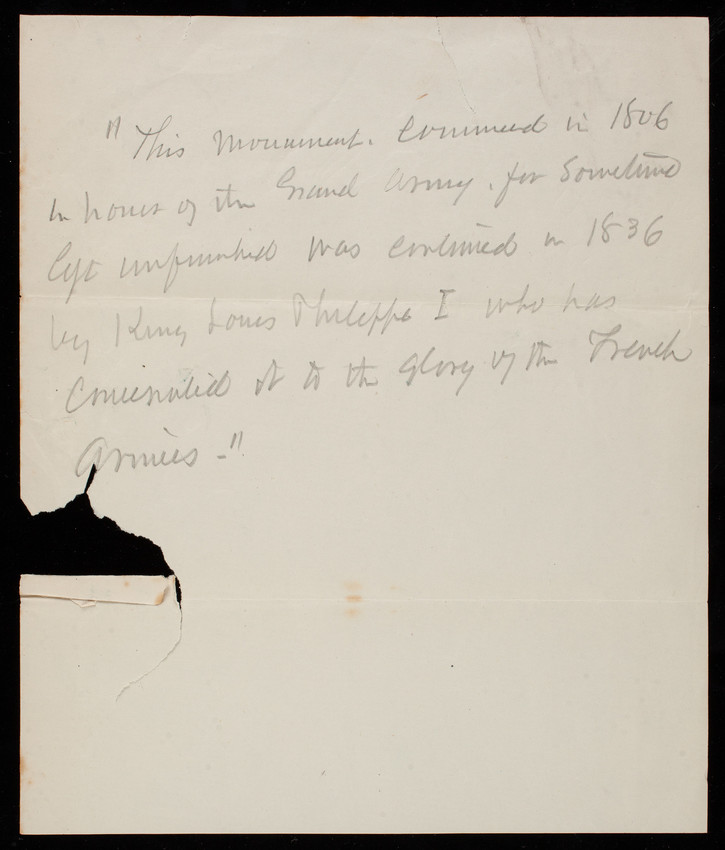 "This Monument. Commenced in 1806
in honor of the Grand Army, for Sometime
left unfinished was continued in 1836
by King Louis Philippe I who has
Consecrated it to the glory of the French
Armies -"